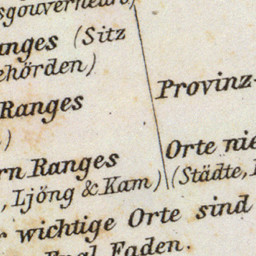 sgouverneurs)
anges (Sitz
ehörden)
Ranges
)
rn Ranges
, Ljöng & Kam)
Provinz-
Orte nie
(Städte,
r wichtige Orte sind
Engl. Faden.